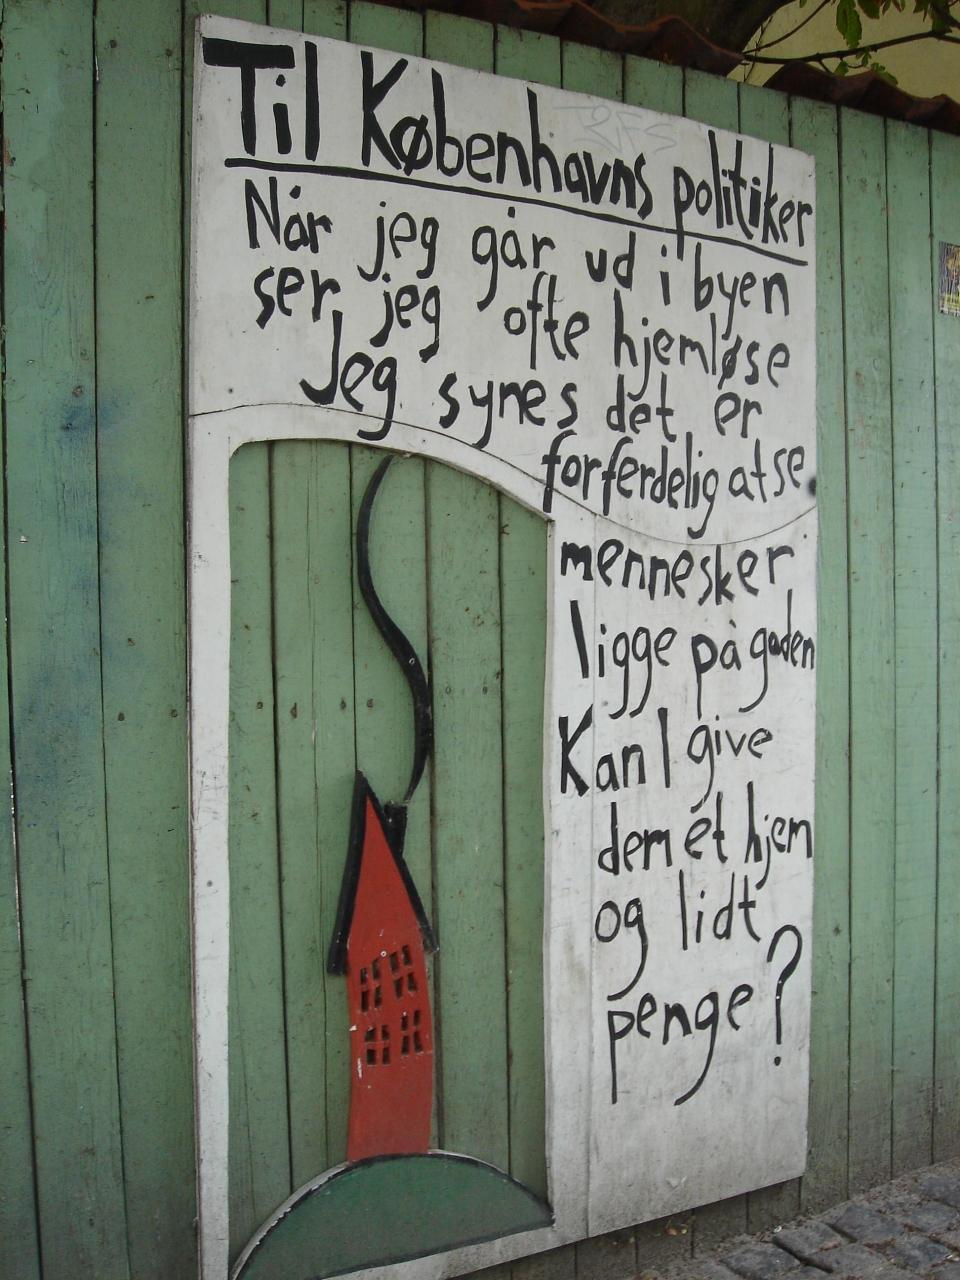 Til Københavns politiker
Når jeg går ud i byen
ser jeg ofte hjemløse
Jeg synes det er
forferdelig at se
mennesker
ligge på gaden
Kan I give
dem et hjem
og lidt
penge?